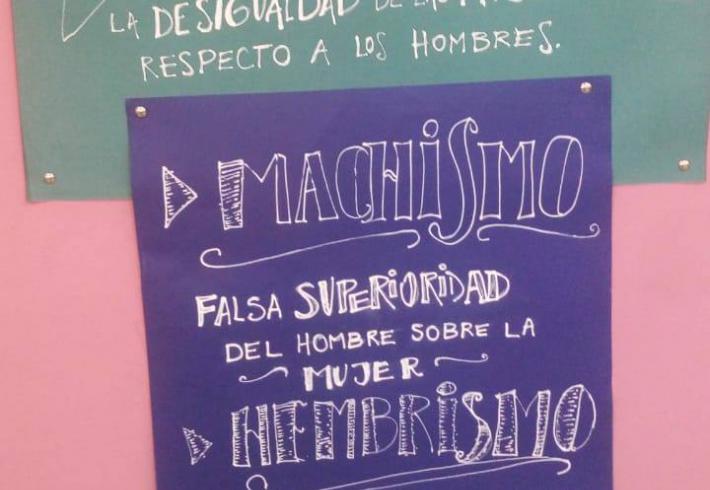 LA DESIGUALDAD DE LAS
RESPECTO A LOS HOMBRES.
MACHISMO
FALSA SUPERIORIDAD
DEL HOMBRE SOBRE LA
MUJER
HEMBRISMO